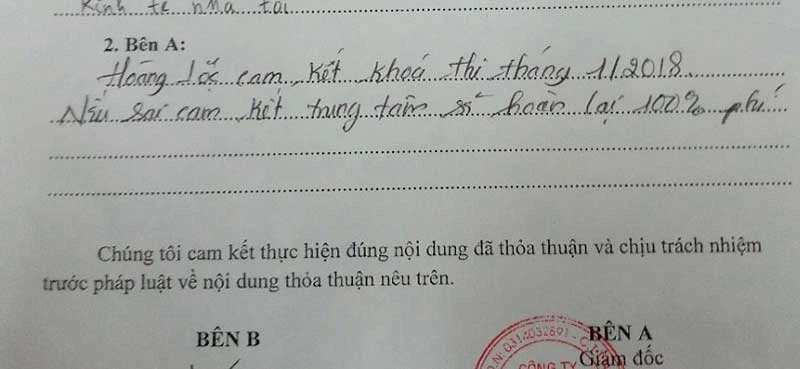 Kinh tế nha tai
2. Bên A:
Hoàng Lộc cam kết khoá thi tháng 11.2018
Nếu sai cam kết trung tâm sẽ hoàn lại 100% phí
Chúng tôi cam kết thực hiện đúng nội dung đã thỏa thuận và chịu trách nhiệm
trước pháp luật về nội dung thỏa thuận nêu trên.
BÊN B
BÊN A
Giám đốc
0314032691 - C.T
CÔNG TY